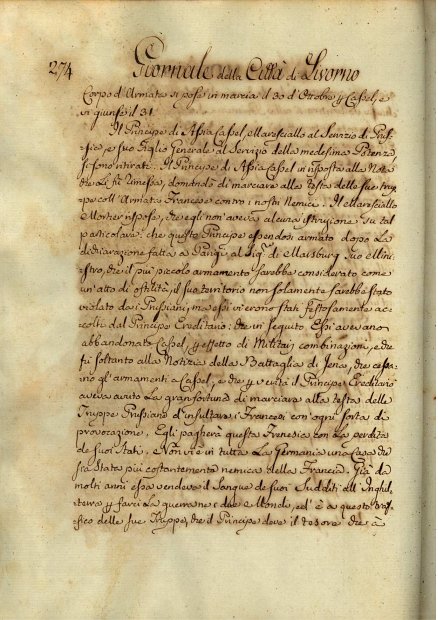 274
Giornale della Città di Livorno
Corpo d'Armata si pose in marcia il 30 d'Ottobre p Cassel, e
vi giunse il 31.
Il Principe di Assia Cassel, Maresciallo al Servizio di Prus-
sia, e suo Figlio Generale al Servizio della medesima Potenza,
si sono ritirati. Il Principe di Assia Cassel in risposta alla Nota
che Li fù rimessa, domandò di marciare alla testa delle sue trup-
pe coll'Armata Francese contro i nostri Nemici. Il Maresciallo
Mortier rispose, che egli non aveva alcuna istruzione su tal
particolare: che questo Principe essendosi armato dopo La
dichiarazione fatta a Parigi al Sigr. di Malsburg suo Mini-
stro, che il più piccolo armamento sarebbe considerato come
un'atto di ostilità, il suo territorio non solamente sarebbe stato
violato da i Prussiani; ma essi vi erono stati festosamente ac-
colti dal Principe Ereditario: che in seguito Essi avevano
abbandonato Cassel p effetto di Militari combinazioni, e che
fù soltanto alla Notizia della Battaglia di Jena, che cessa-
rino gl'armamenti a Cassel, e che p verità il Principe Ereditario
aveva avuto La gran fortuna di marciare alla testa delle
Truppe Prussiane d'insultare i Francesi con ogni sorta di
provocazione. Egli pagherà questa Frenesia con La perdita
de suoi Stati. Non vi è in tutta La Germania una Casa che
sia stata più costantemente nemica della Francia. Già da
molti anni essa vendeva il Sangue de suoi Sudditi all'Inghil-
terra p farci La guerra ne i due Mondo, ed' è a questo traf-
fico delle sue Truppe, che il Principe deve il tesoro che à